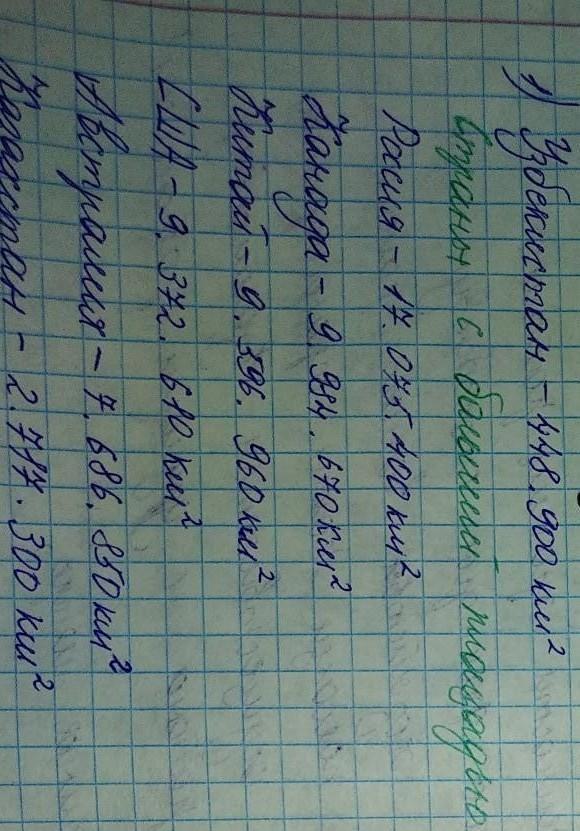 1) Узбекистан - 448.900 км²
Страны с большой площадью
Россия - 17.075.400 км²
Канада - 9.984.670 км²
Китай - 9.596.960 км²
США - 9.372.610 км²
Австралия - 7.686.850 км²
Казахстан - 2.717.300 км²